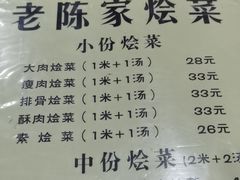 老陈家烩菜
小份烩菜
大肉烩菜（1米+1汤） 28元
瘦肉烩菜（1米+1汤） 33元
排骨烩菜（1米+1汤） 33元
酥肉烩菜（1米+1汤） 33元
素烩菜（1米+1汤） 26元
中份烩菜（2米+2汤